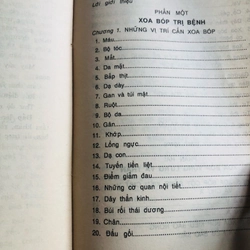 Lời giới thiệu
PHẦN MỘT
XOA BÓP TRỊ BỆNH
Chương 1. NHỮNG VỊ TRÍ CẦN XOA BÓP
1. Máu
2. Bộ tóc
3. Mắt
4. Da mặt
5. Bắp thịt
6. Dạ dày
7. Gan và túi mật
8. Ruột
9. Bộ da
10. Gân
11. Khớp
12. Lồng ngực
13. Dạ con
14. Tuyến tiền liệt
15. Điểm giảm đau
16. Những cơ quan nội tiết
17. Dây thần kinh
18. Búi rối thái dương
19. Chân
20. Đầu gối